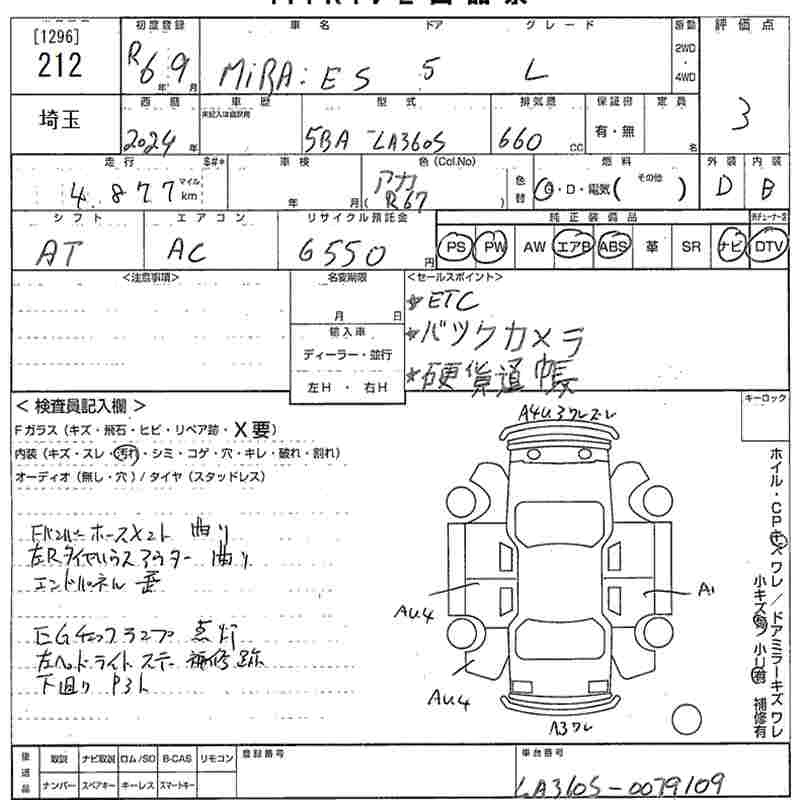 [1296]
212
埼玉
初度登録 車名 ドア グレード 駆動 評価点
R6年9月 MiRA:ES 5 L 2WD・4WD
3
西暦 車歴 型式 排気量 保証書 定員
未記入は自家用
2024年 5BA-LA360S 660cc 有・無 名
走行 $#* 車検 色(Col.No) 燃料 外装 内装
4877 マイル km 年 月 アカ (R67) 色替 G・D・電気( その他 ) D B
シフト エアコン リサイクル預託金 純正装備品
AT AC 6550円 PS PW AW エアB ABS 革 SR ナビ DTV
<注意事項> 名変期限 <セールスポイント>
月 日
輸入車
ディーラー・並行
左H・右H
★ETC
★バックカメラ
★硬貨通帳
<検査員記入欄> キーロック
Fガラス(キズ・飛石・ヒビ・リペア跡・X要)
内装(キズ・スレ・汚れ・シミ・コゲ・穴・キレ・破れ・割れ)
オーディオ(無し・穴)/タイヤ(スタッドレス)
Fバンパーホースメント 曲り
左Rタイヤハウスアウター 曲り
エンドパネル 歪
EGチェックランプ 点灯
左ヘッドライトステー 補修跡
下廻り
A4U3ワレズレ
AU4
A1
AU4
A3ワレ
ホイル・CPキズ ワレ/ドアミラーキズ ワレ
小キズ 小凹有 補修有
後送品 取説 ナビ取説 ロム/SD B-CAS リモコン
ナンバー スペアキー キーレス スマートキー
登録番号
車台番号
LA360S-0079109